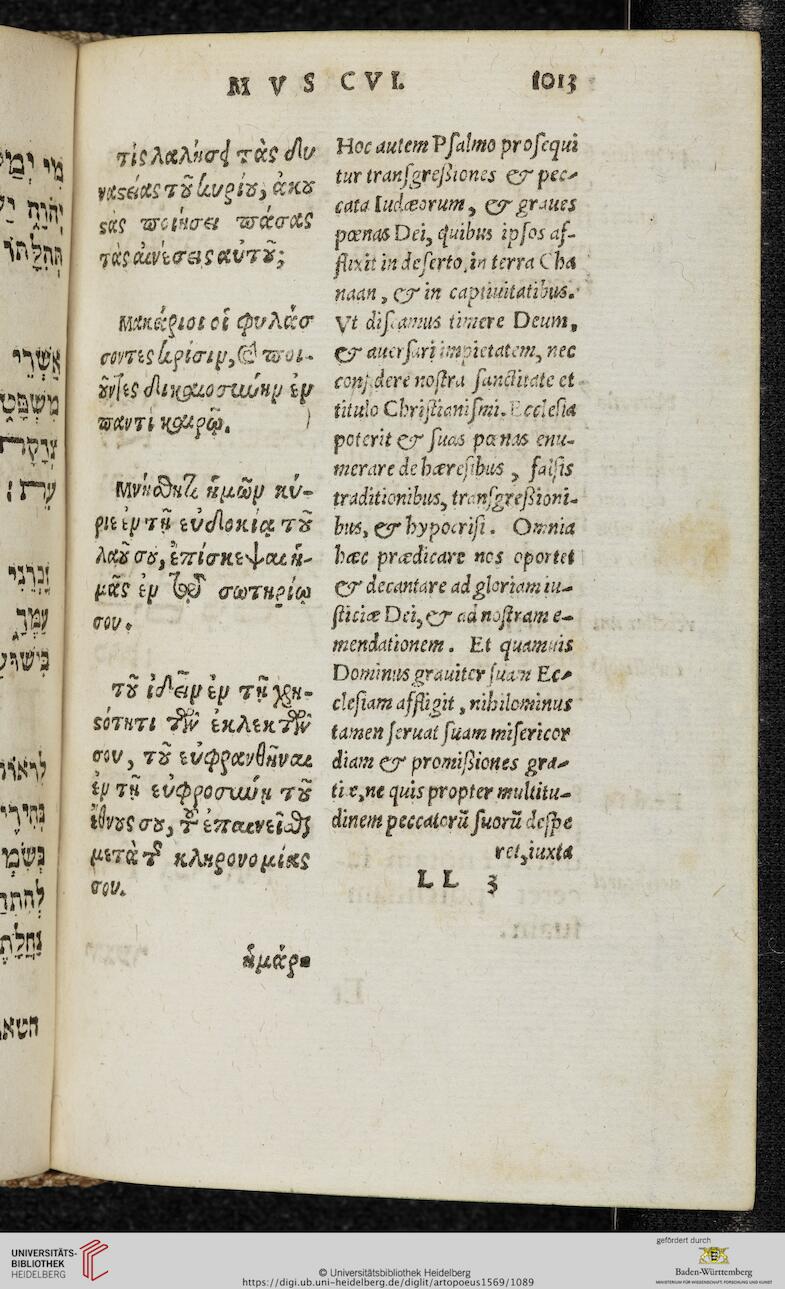 MVSCVI. 1013
τίς λαλήσει τὰς δυ
ναστείας τοῦ κυρίου, ἀκου
στὰς ποιήσει πάσας
τὰς αἰνέσεις αὐτοῦ;
Μακάριοι οἱ φυλάσ
σοντες κρίσιν, καὶ ποι-
οῦντες δικαιοσύνην ἐν
παντὶ καιρῷ.
Μνήσθητι ἡμῶν κύ-
ριε ἐν τῇ εὐδοκίᾳ τοῦ
λαοῦ σου, ἐπίσκεψαι ἡ-
μᾶς ἐν τῷ σωτηρίῳ
σου.
τοῦ ἰδεῖν ἐν τῇ χρη-
στότητι τῶν ἐκλεκτῶν
σου, τοῦ εὐφρανθῆναι
ἐν τῇ εὐφροσύνῃ τοῦ
ἔθνους σου, τοῦ ἐπαινεῖσθαι
μετὰ τῆς κληρονομίας
σου.
ἡμάρ-
Hoc autem Psalmo prosequi
tur transgreßiones & pec-
cata Iudæorum, & graues
pœnas Dei, quibus ipsos af-
flixit in deserto, in terra Cha
naan, & in captiuitatibus.
Vt discamus timere Deum,
& auersari impietatem, nec
confidere nostra sanctitate et
titulo Christianismi. Ecclesia
poterit & suas pœnas enu-
merare de hæresibus, falsis
traditionibus, transgreßioni-
bus, & hypocrisi. Omnia
hæc prædicare nos oportet
& decantare ad gloriam iu-
sticiæ Dei, & ad nostram e-
mendationem. Et quamuis
Dominus grauiter suam Ec-
clesiam affligit, nihilominus
tamen seruat suam misericor
diam & promißiones gra-
tiæ, ne quis propter multitu-
dinem peccatorū suorū despe
ret, iuxta
LL 3
UNIVERSITÄTS-
BIBLIOTHEK
HEIDELBERG
© Universitätsbibliothek Heidelberg
https://digi.ub.uni-heidelberg.de/diglit/artopoeus1569/1089
gefördert durch
Baden-Württemberg
MINISTERIUM FÜR WISSENSCHAFT, FORSCHUNG UND KUNST